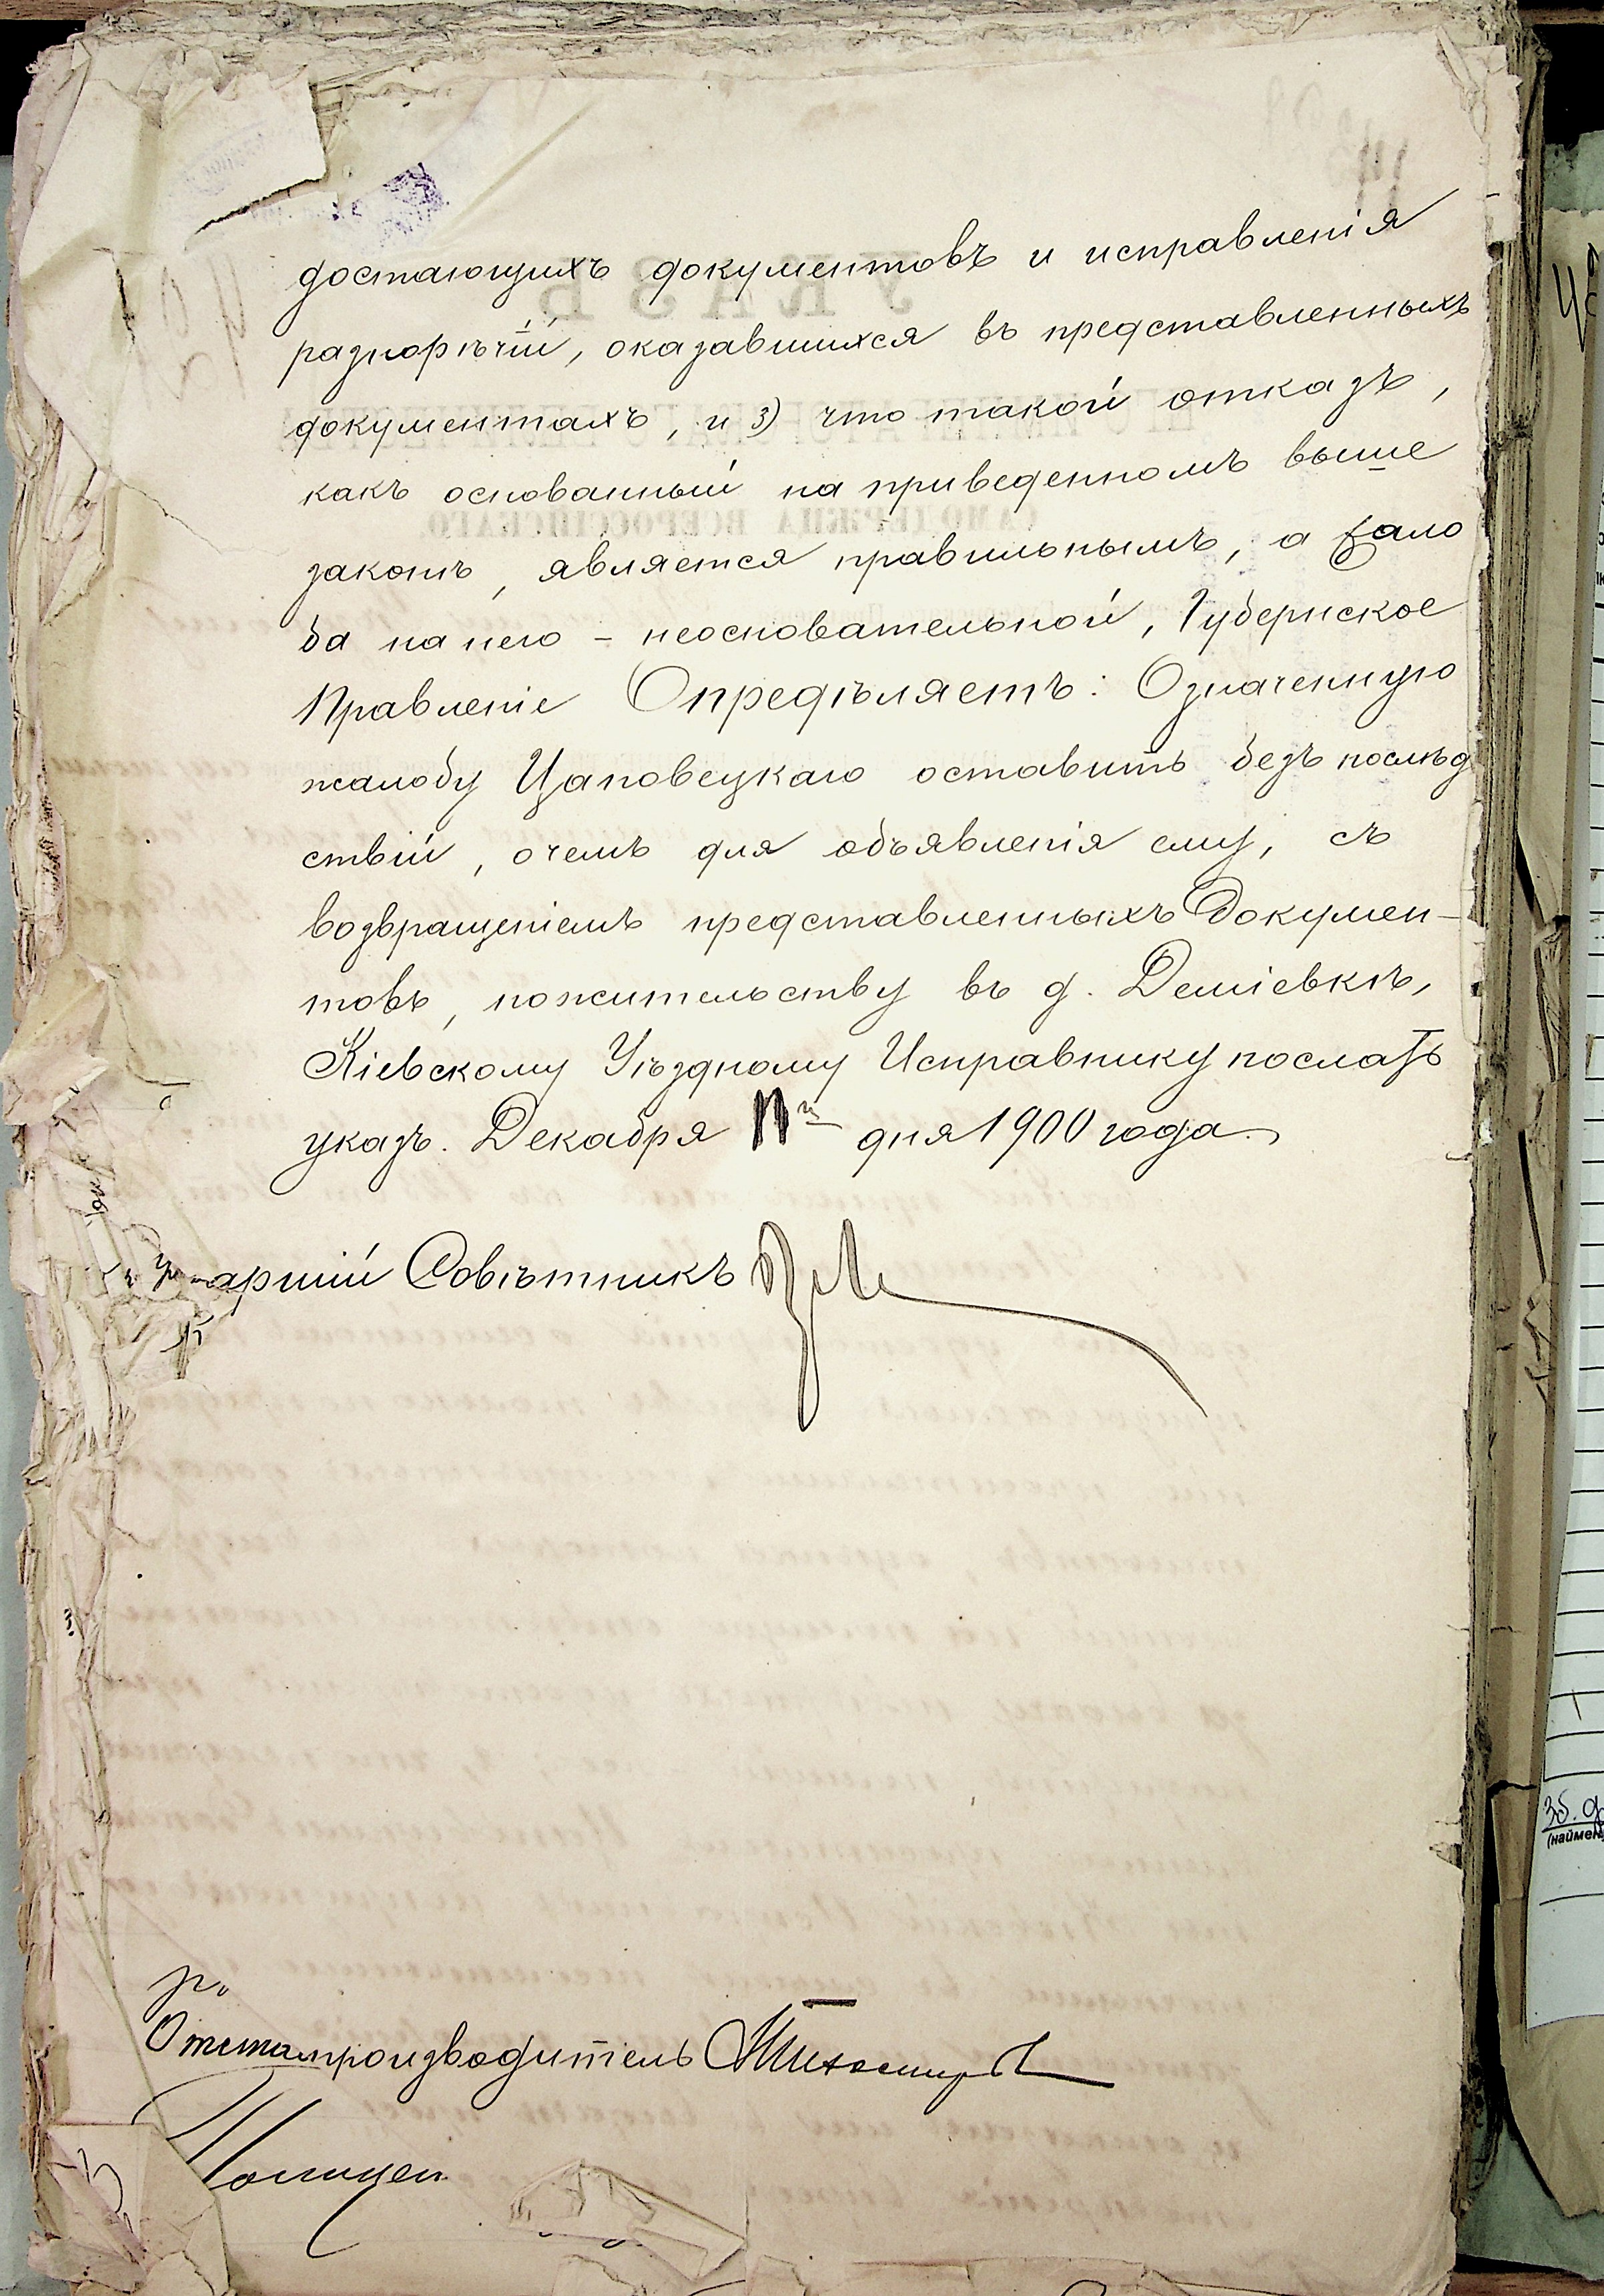 достающихъ документовъ и исправленія
разнорѣчій, оказавшихся въ представленныхъ
документахъ, и 3) что такой отказъ,
какъ основанный на приведенномъ выше
законѣ, является правильнымъ, а жало
ба на него - неосновательной, Губернское
Правленіе Опредѣляетъ: Означенную
жалобу Цаповецкаго оставить безъ послѣд
ствій, о чемъ для объявленія ему, съ
возвращеніемъ представленныхъ докумен-
товъ, по жительству въ д. Деміевкѣ,
Кіевскому Уѣздному Исправнику послать
указъ. Декабря дня 1900 года.
Совѣтникъ
производитель Тихомировъ